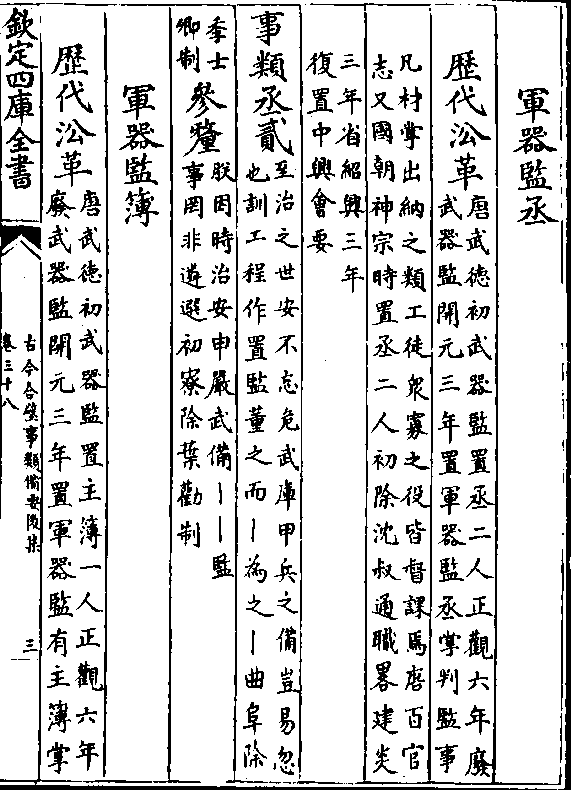 軍器監丞
歴代沿革唐武徳初武器監置丞二人正觀六年廢
武器監開元三年置軍器監丞掌判監事
凡材掌出納之類工徒衆寡之役皆督課焉唐百官
志又國朝神宗時置丞二人初除沈叔通職畧建炎
三年省紹興三年
復置中興會要
事類丞貳至治之世安不忘危武庫甲兵之備豈易忽
也訓工程作置監董之而丨為之丨曲阜除
季士
卿制
參釐朕因時治安申嚴武備丨丨監
事罔非遴選初寮除葉勸制
軍器監簿
歴代沿革唐武徳初武器監置主簿一人正觀六年
廢武器監開元三年置軍器監有主簿掌
欽定四庫全書
古今合璧事類備要後集
卷三十八
三